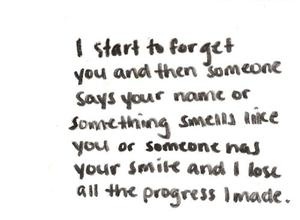 I start to forget
you and then someone
says your name or
something smells like
you or someone has
your smile and I lose
all the progress I made.